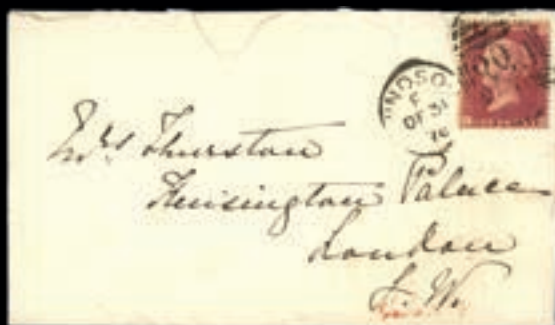 INDSO
F
31
76
Mrs Thurston
Kensington Palace
London
S.W.